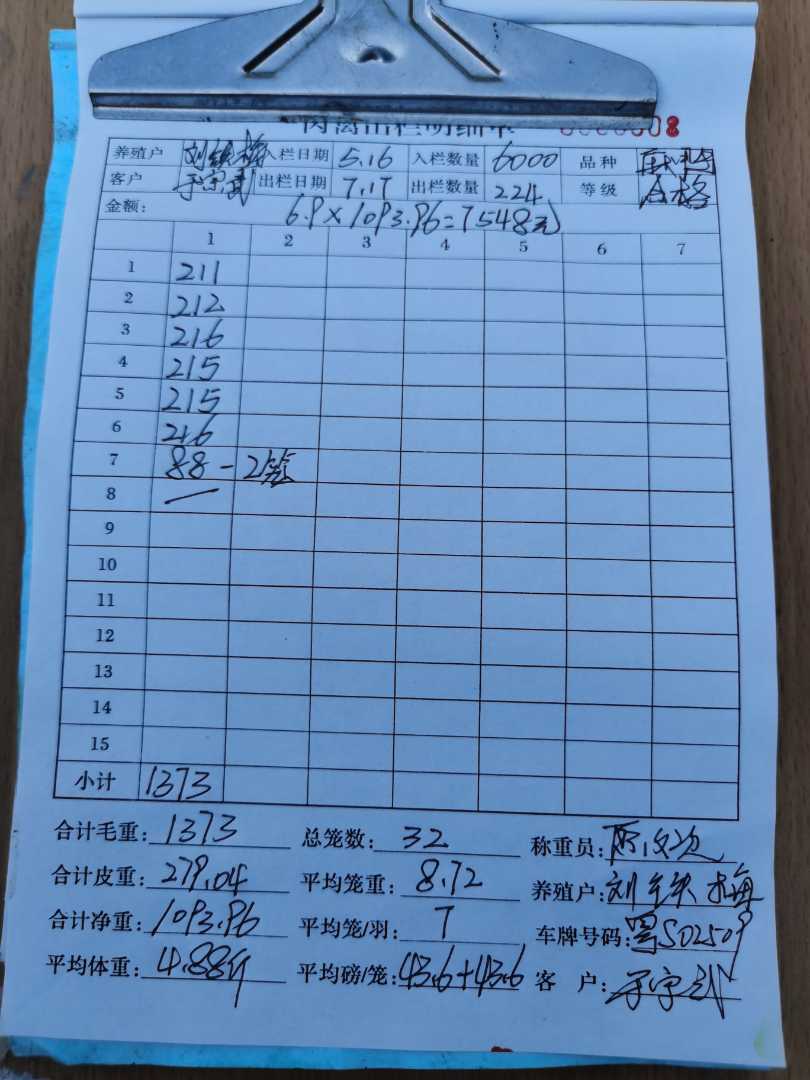 肉禽出栏明细单 8
养殖户 刘铁梅 入栏日期 5.16 入栏数量 6000 品种
客户 于宗武 出栏日期 7.17 出栏数量 224 等级 合格
金额: 6.9×1093.96=7548元
1 2 3 4 5 6 7
1 211
2 212
3 216
4 215
5 215
6 216
7 88-2笼
8 —
9
10
11
12
13
14
15
小计 1373
合计毛重: 1373 总笼数: 32 称重员:
合计皮重: 279.04 平均笼重: 8.72 养殖户: 刘铁梅
合计净重: 1093.96 平均笼/羽: 7 车牌号码: 粤S02509
平均体重: 4.88斤 平均磅/笼: 43.6+43.6 客 户: 于宗武